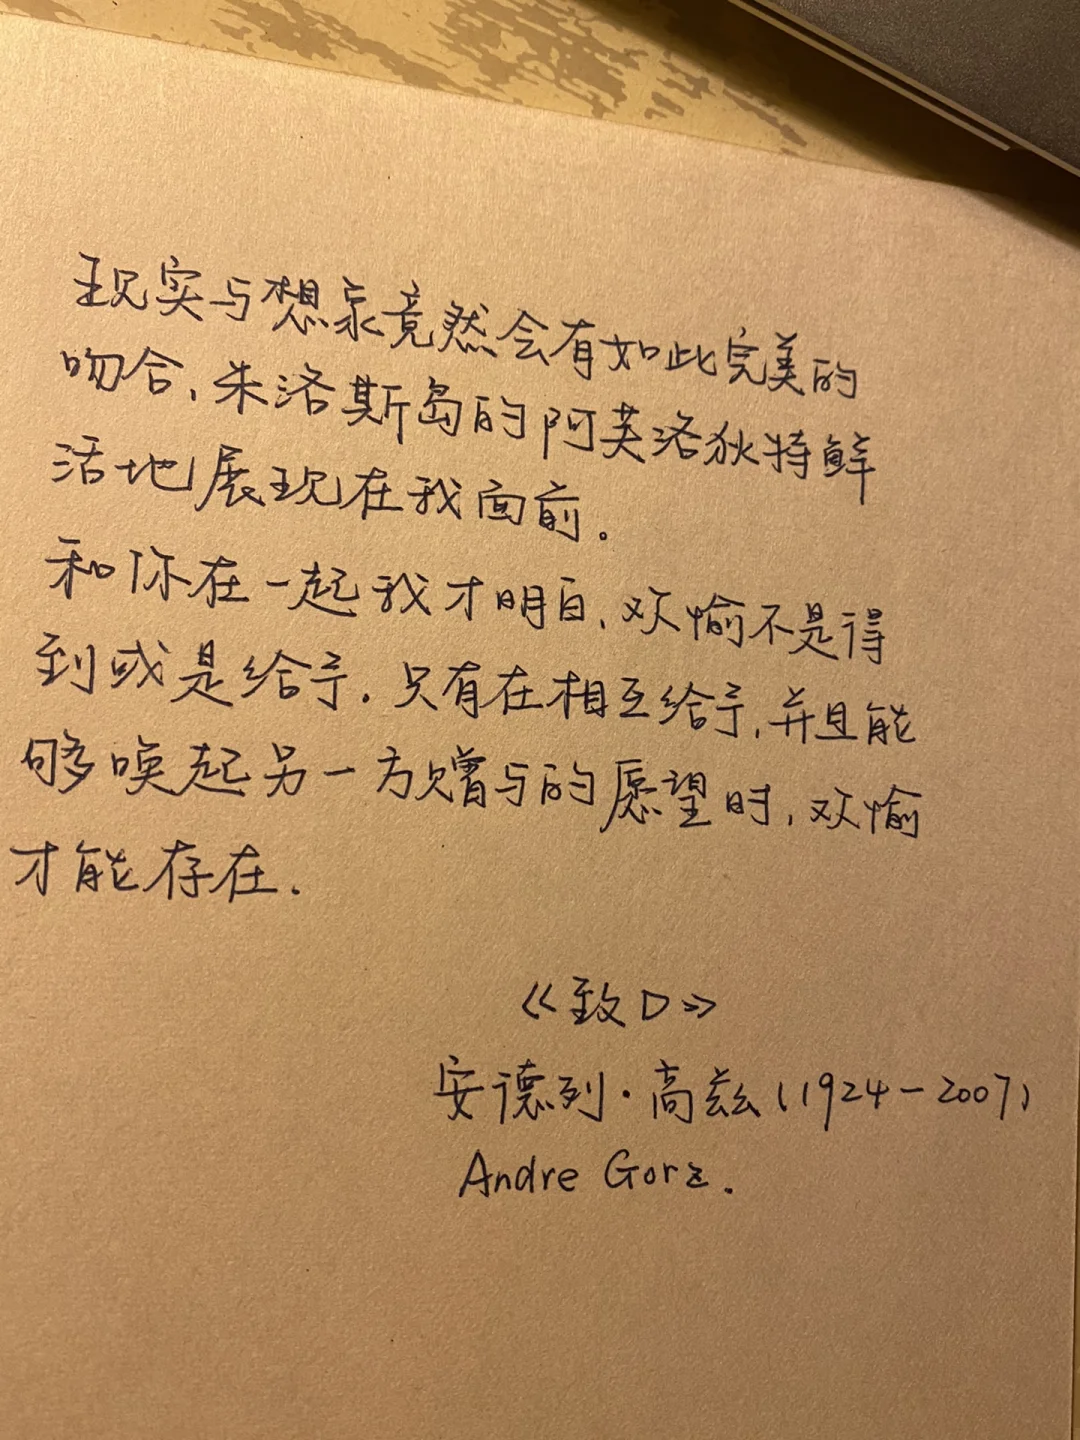 现实与想象竟然会有如此完美的
吻合,朱洛斯岛的阿芙洛狄特鲜
活地展现在我面前。
和你在一起我才明白,欢愉不是得
到或是给予.只有在相互给予,并且能
够唤起另一方赠与的愿望时,欢愉
才能存在.
《致D》
安德列·高兹(1924-2007)
Andre Gorz.